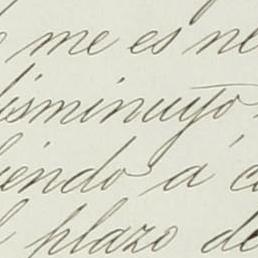 me es ne
disminuyo
iendo á c
plazo de